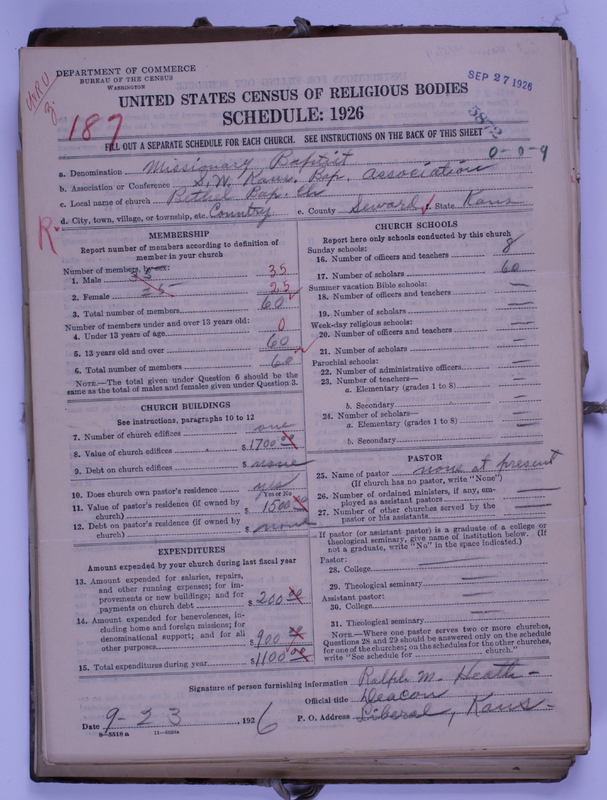 DEPARTMENT OF COMMERCE
BUREAU OF THE CENSUS
WASHINGTON
SEP 27 1926
UNITED STATES CENSUS OF RELIGIOUS BODIES
SCHEDULE: 1926
187
5872
FILL OUT A SEPARATE SCHEDULE FOR EACH CHURCH. SEE INSTRUCTIONS ON THE BACK OF THIS SHEET
0-0-9
a. Denomination Missionary Baptist
b. Association or Conference S. W. Kans. Bap. Association
c. Local name of church Bethel Bap. Ch
d. City, town, village, or township, etc. Country e. County Seward f. State Kans
R
MEMBERSHIP
Report number of members according to definition of member in your church
Number of members by sex:
1. Male 35 35
2. Female 25 25
3. Total number of members 60
Number of members under and over 13 years old:
4. Under 13 years of age 0
5. 13 years old and over 60
6. Total number of members 60
NOTE.—The total given under Question 6 should be the
same as the total of males and females given under Question 3.
CHURCH BUILDINGS
See instructions, paragraphs 10 to 12
7. Number of church edifices one
8. Value of church edifices $ 1700 00
9. Debt on church edifices $ none
10. Does church own pastor's residence yes
Yes or No
11. Value of pastor's residence (if owned by
church) $ 1500 00
12. Debt on pastor's residence (if owned by
church) $ none
EXPENDITURES
Amount expended by your church during last fiscal year
13. Amount expended for salaries, repairs,
and other running expenses; for im-
provements or new buildings; and for
payments on church debt $ 200 00
14. Amount expended for benevolences, in-
cluding home and foreign missions; for
denominational support; and for all
other purposes $ 900 00
15. Total expenditures during year $ 1100 00
CHURCH SCHOOLS
Report here only schools conducted by this church
Sunday schools:
16. Number of officers and teachers 8
17. Number of scholars 60
Summer vacation Bible schools:
18. Number of officers and teachers
19. Number of scholars
Week-day religious schools:
20. Number of officers and teachers
21. Number of scholars
Parochial schools:
22. Number of administrative officers
23. Number of teachers—
a. Elementary (grades 1 to 8)
b. Secondary
24. Number of scholars—
a. Elementary (grades 1 to 8)
b. Secondary
PASTOR
25. Name of pastor none at present
(If church has no pastor, write "None")
26. Number of ordained ministers, if any, em-
ployed as assistant pastors
27. Number of other churches served by the
pastor or his assistants
If pastor (or assistant pastor) is a graduate of a college or
theological seminary, give name of institution below. (If
not a graduate, write "No" in the space indicated.)
Pastor:
28. College
29. Theological seminary
Assistant pastor:
30. College
31. Theological seminary
NOTE.—Where one pastor serves two or more churches,
Questions 28 and 29 should be answered only on the schedule
for one of the churches; on the schedules for the other churches,
write "See schedule for church."
Signature of person furnishing information Ralph M. Heath
Official title Deacon
Date 9-23, 1926 P. O. Address Liberal, Kans.
8-5518a